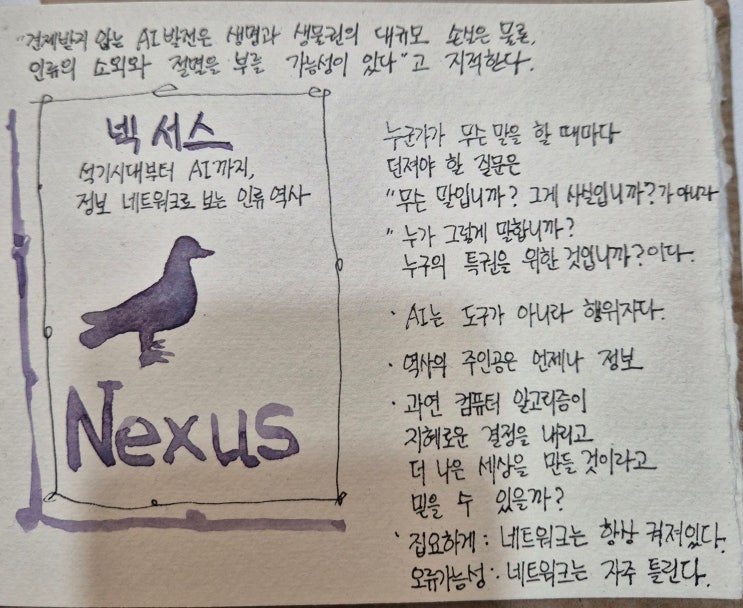 "견제받지 않는 AI 발전은 생명과 생물권의 대규모 손상은 물론,
인류의 소외와 절멸을 부를 가능성이 있다"고 지적한다.
넥서스
석기시대부터 AI까지,
정보 네트워크로 보는 인류 역사
Nexus
누군가가 무슨 말을 할 때마다
던져야 할 질문은
"무슨 말입니까? 그게 사실입니까?가 아니라
"누가 그렇게 말합니까?
누구의 특권을 위한 것입니까?이다.
· AI는 도구가 아니라 행위자다.
· 역사의 주인공은 언제나 정보
· 과연 컴퓨터 알고리즘이
지혜로운 결정을 내리고
더 나은 세상을 만들 것이라고
믿을 수 있을까?
· 집요하게 : 네트워크는 항상 켜져있다.
오류가능성 : 네트워크는 자주 틀린다.